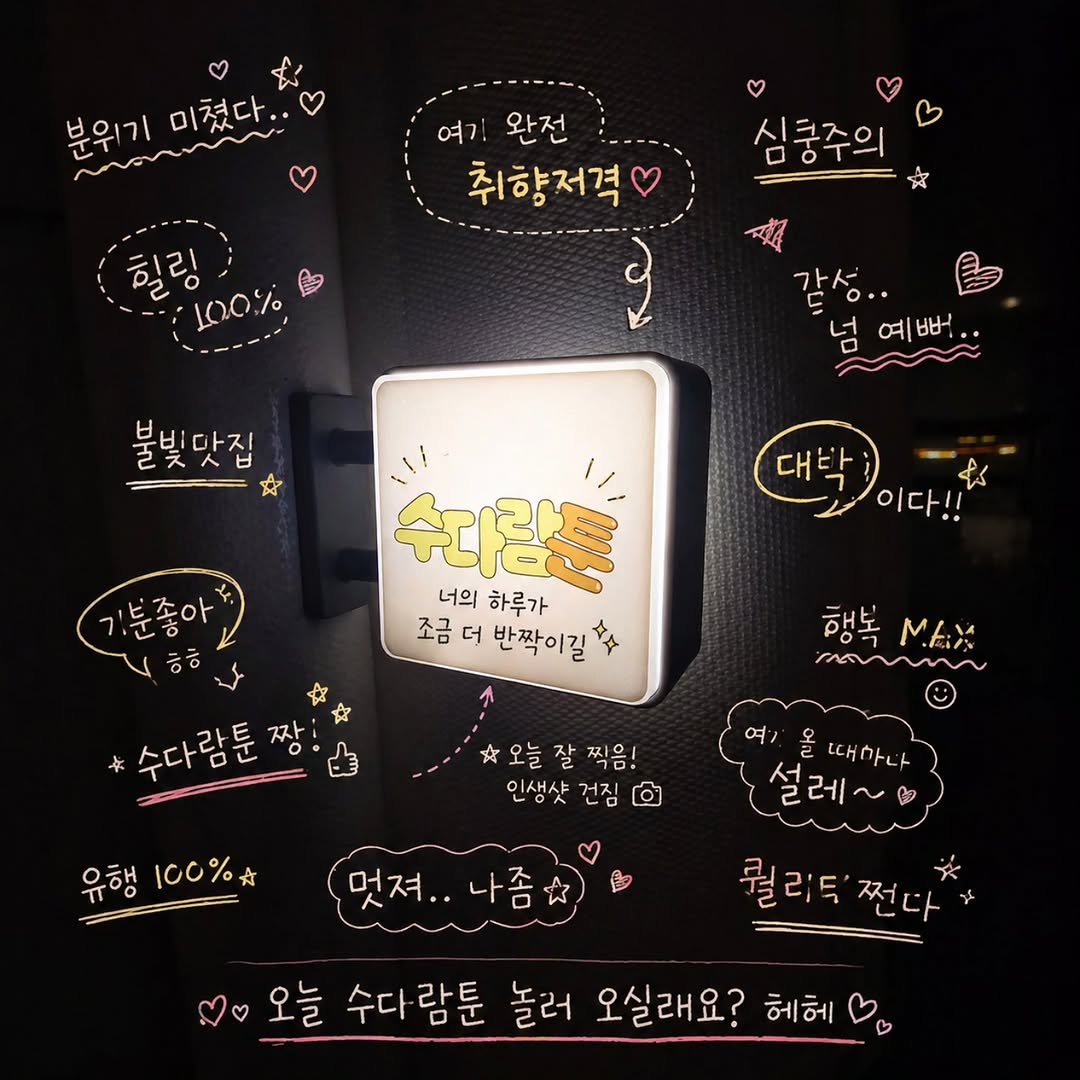 분위기 미쳤다..
여기 완전
취향저격
심쿵주의
힐링
100%
감성..
넘 예뻐..
불빛맛집
대박
이다!!
수다람툰
너의 하루가
조금 더 반짝이길
기분좋아
ㅎㅎ
행복 MAX
수다람툰 짱!
오늘 잘 찍음!
인생샷 건짐
여기 올 때마다
설레~
유행 100%
멋져.. 나좀
퀄리티 쩐다
오늘 수다람툰 놀러 오실래요? 헤헤